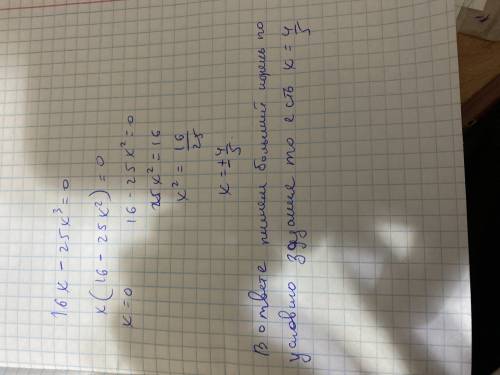 16x - 25x³ = 0
x(16 - 25x²) = 0
x = 0    16 - 25x² = 0
25x² = 16
x² = 16/25
x = ±4/5
В ответе пишем больший корень по
условию задания то есть x = 4/5